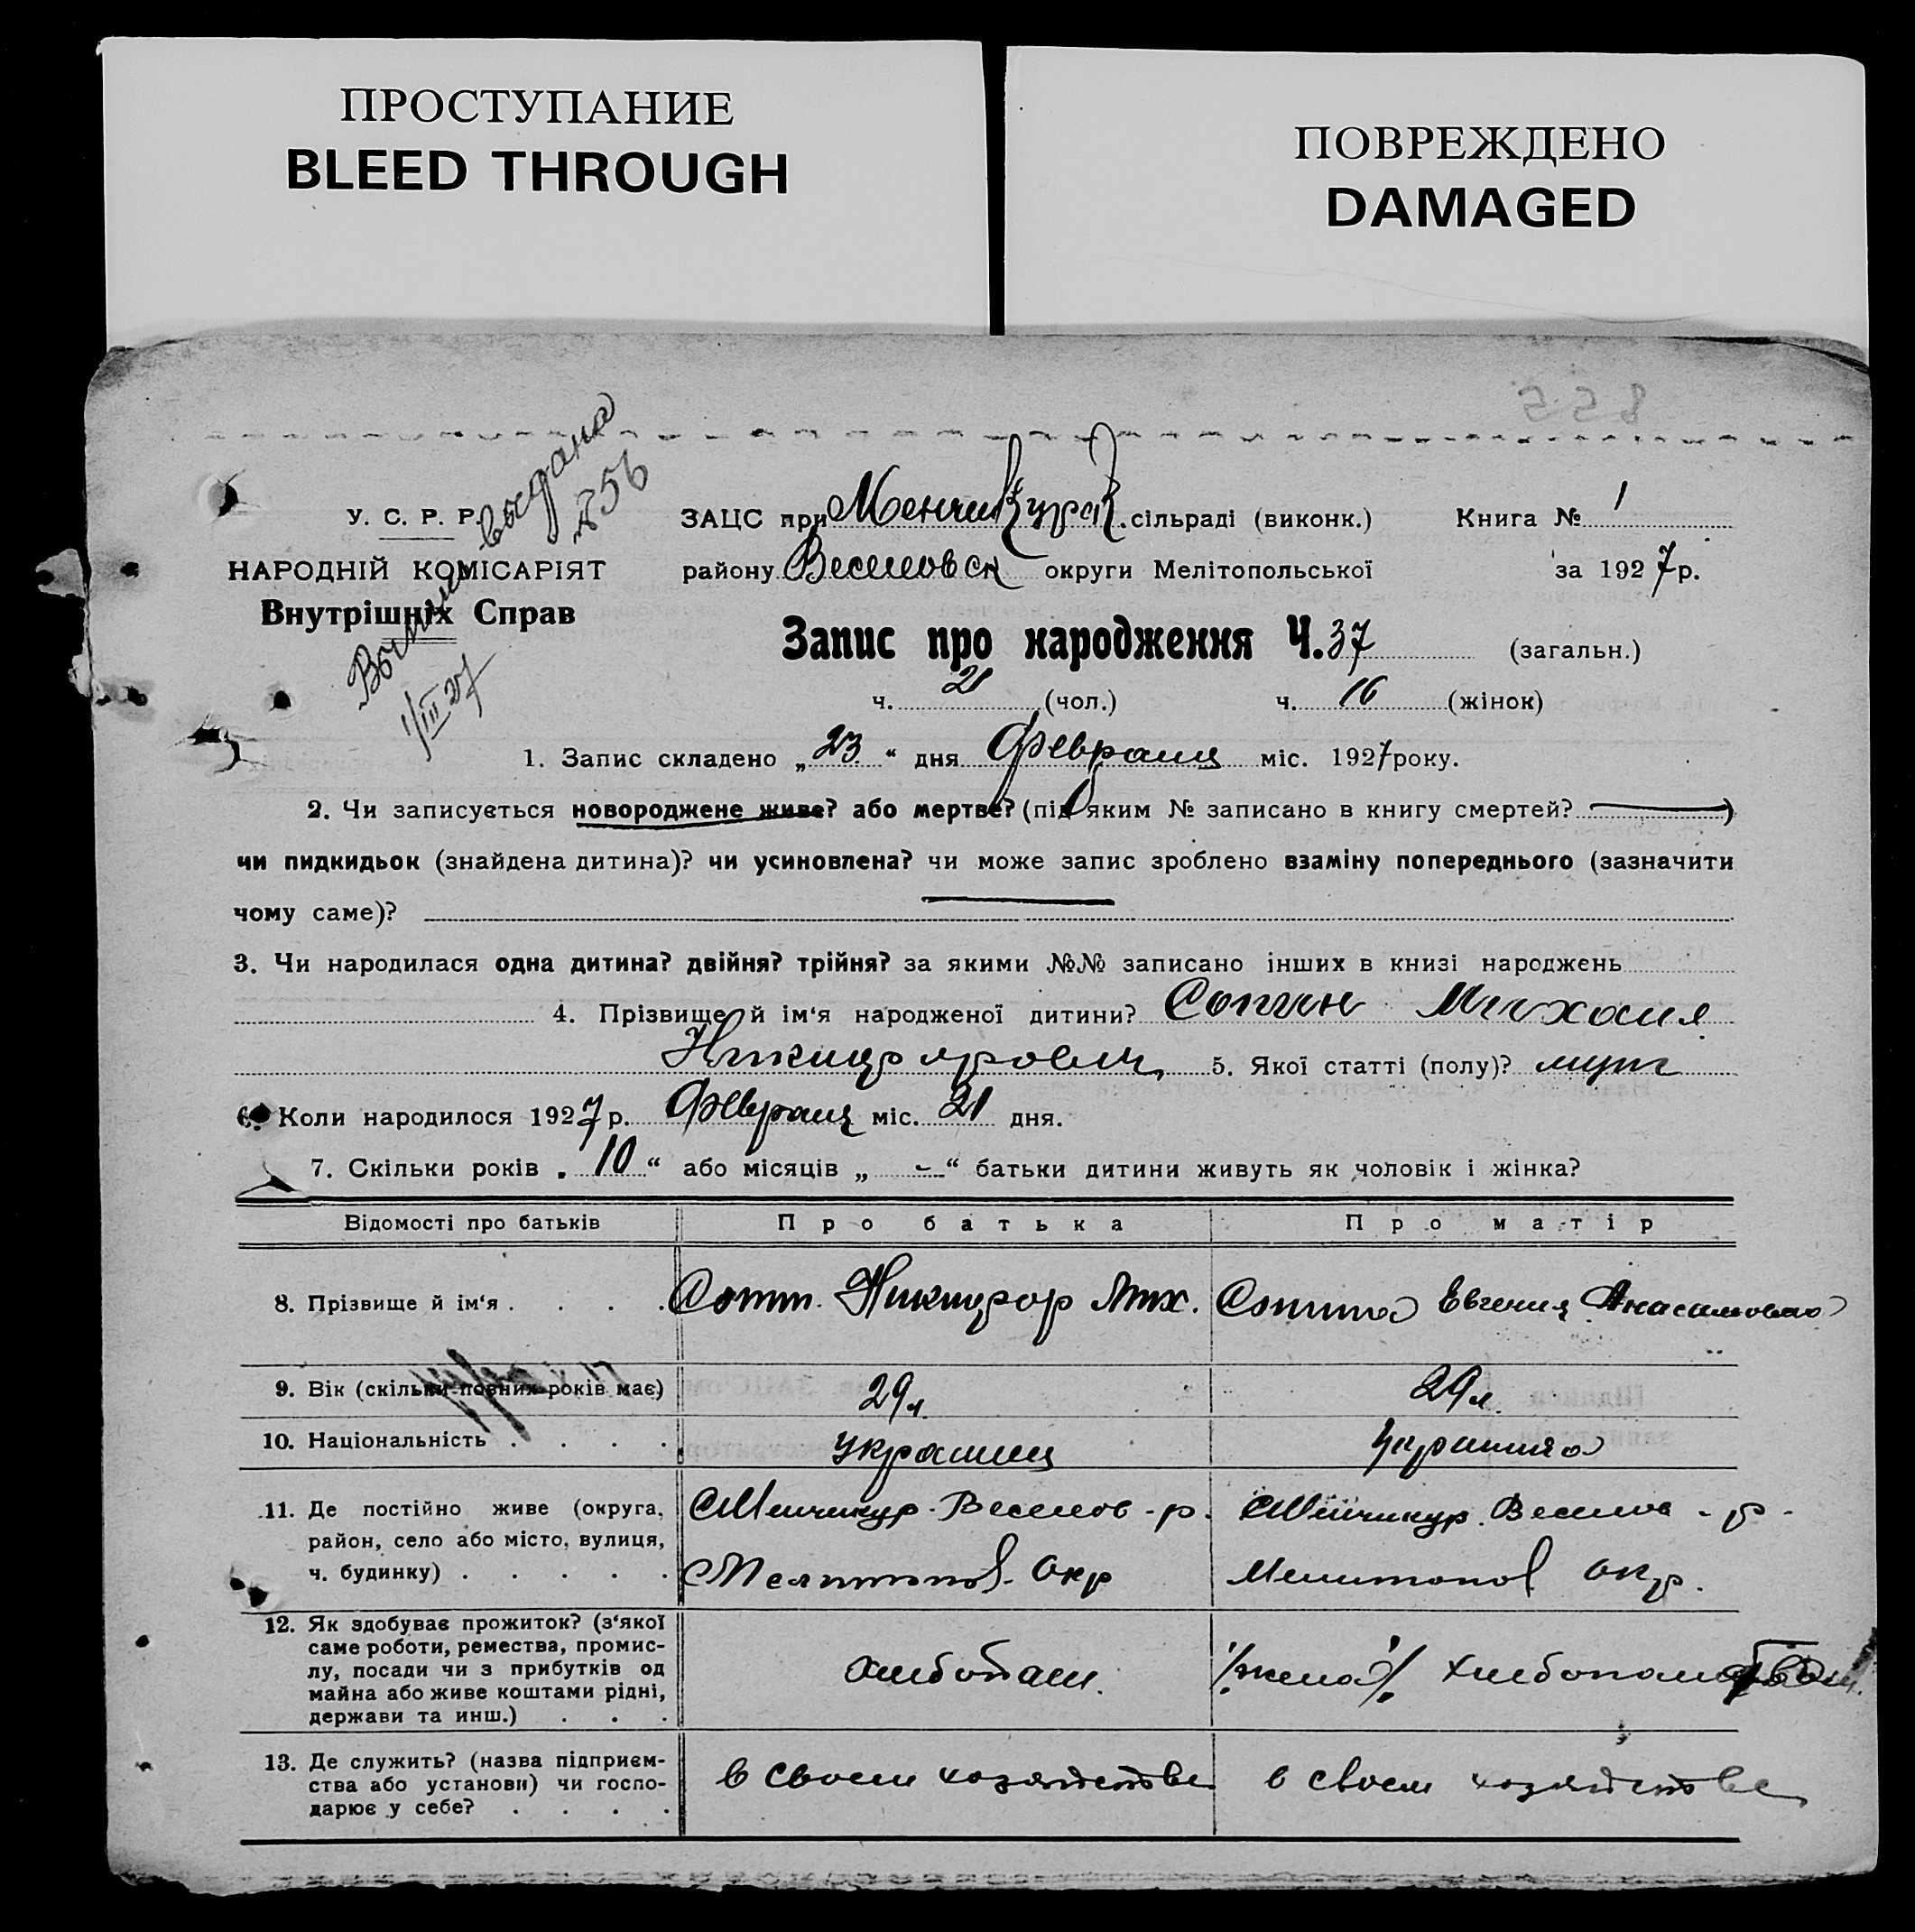 ПРОСТУПАНИЕ
BLEED THROUGH
ПОВРЕЖДЕНО
DAMAGED
855
выдана
256
1/III 27
У. С. Р. Р.
НАРОДНІЙ КОМІСАРІЯТ
Внутрішніх Справ
ЗАЦС при Менчикур. сільраді (виконк.) Книга № 1
району Веселовск округи Мелітопольської за 1927 р.
Запис про народження Ч. 37 (загальн.)
ч. 21 (чол.) ч. 16 (жінок)
1. Запис складено „23“ дня Февраля міс. 1927 року.
2. Чи записується новороджене живе? або мертве? (під яким № записано в книгу смертей? —)
чи пидкидьок (знайдена дитина)? чи усиновлена? чи може запис зроблено взаміну попереднього (зазначити
чому саме)?
3. Чи народилася одна дитина? двійня? трійня? за якими №№ записано інших в книзі народжень
4. Прізвище й ім‘я народженої дитини? Сопин Михаил
Никифорович 5. Якої статті (полу)? муж
6. Коли народилося 1927 р. Февраля міс. 21 дня.
7. Скільки років „10“ або місяців „-“ батьки дитини живуть як чоловік і жінка?
Відомості про батьків Про батька Про матір
8. Прізвище й ім‘я . . . . Никифор Мих. Евгения
9. Вік (скільки повних років має) 29 л. 29 л.
10. Національність . . . . украинец украинка
11. Де постійно живе (округа, Менчикур. Веселов - р. Менчикур. Веселов - р.
район, село або місто, вулиця,
ч. будинку) . . . . . Мелитопол. окр Мелитопол окр.
12. Як здобуває прожиток? (з‘якої
саме роботи, ремества, промис-
лу, посади чи з прибутків од хлебопаш. /жена/
майна або живе коштами рідні,
держави та инш.) . . .
13. Де служить? (назва підприєм- в своем хозяйстве в своем хозяйстве
ства або установи) чи госпо-
дарює у себе? . . . .